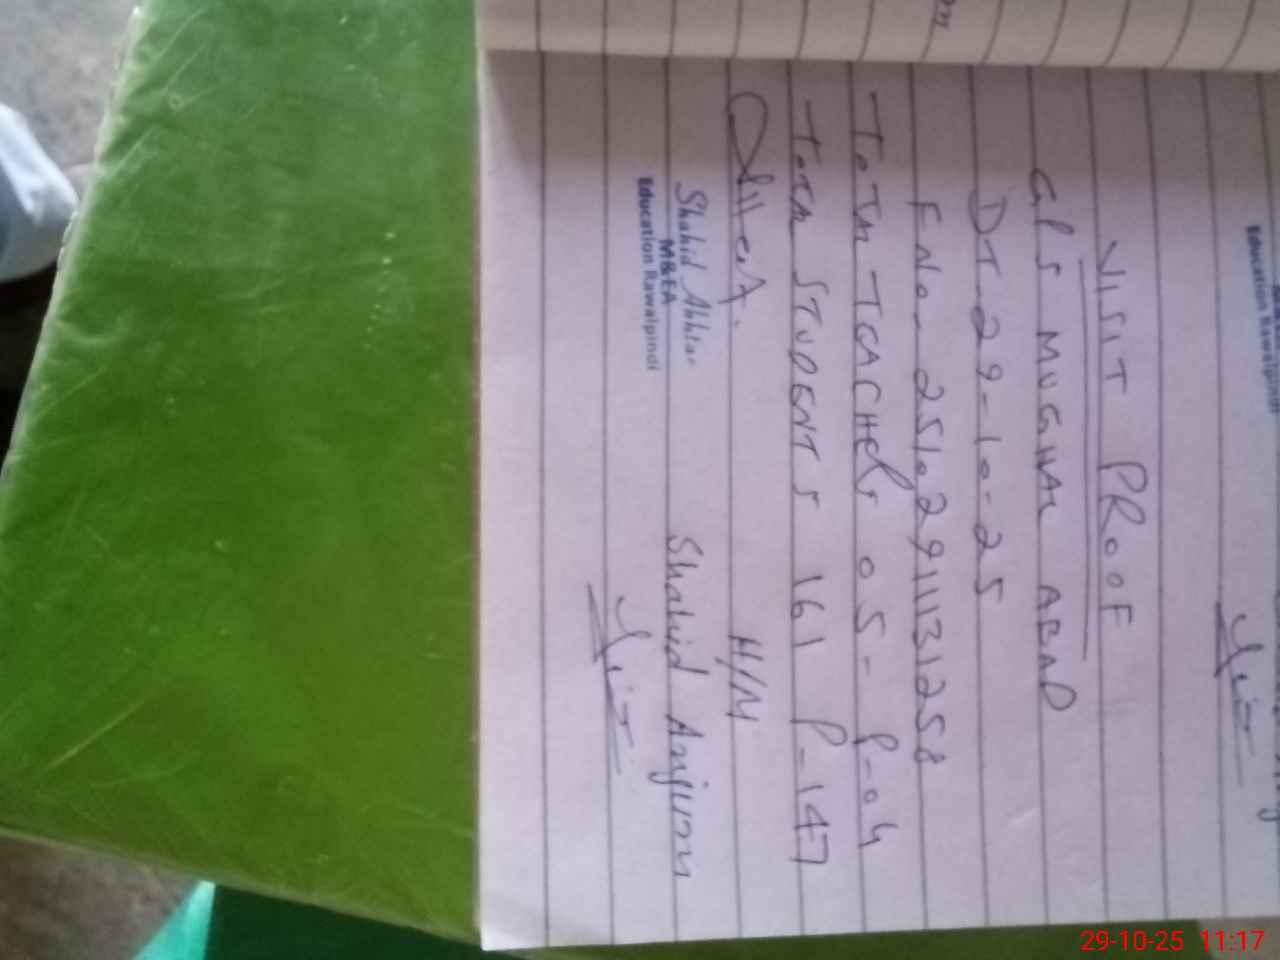 VISIT PROOF
GPS MUGHAL ABAD
DT-29-10-25
F No- 25102911131258
TOTAL TEACHERS 05- P-04
TOTAL STUDENTS 161 P-147
H/M
Shahid Akhtar
M&EA
Education Rawalpindi
Shahid Anjum
Education Rawalpindi
29-10-25 11:17